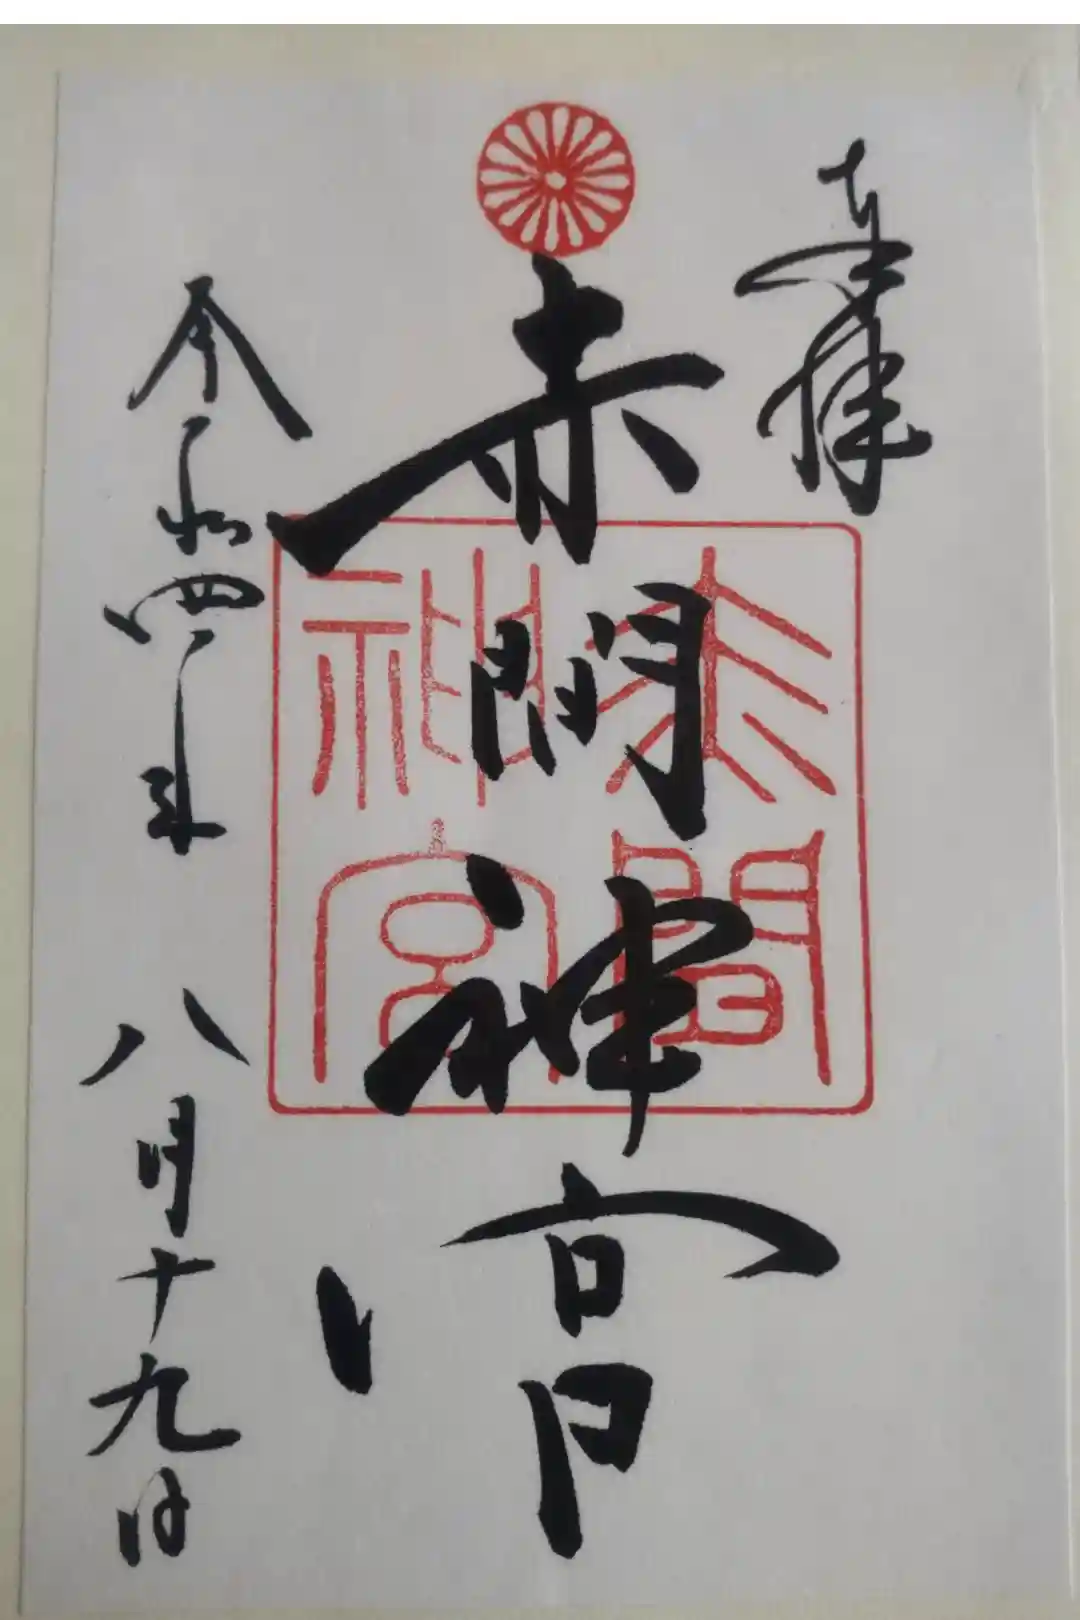 奉拝
赤間神宮
赤間神宮
令和四年八月十九日